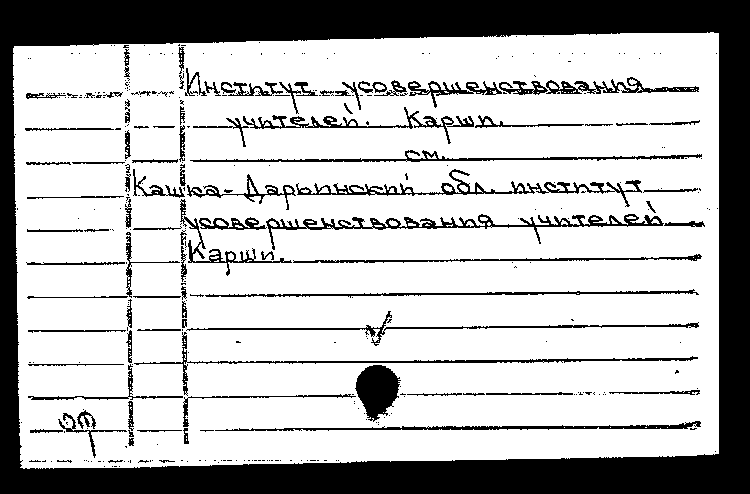 Институт усовершенствования
учителей. Карши.
см.
Кашка-Дарьинский обл. институт
усовершенствования учителей
Карши.
оф